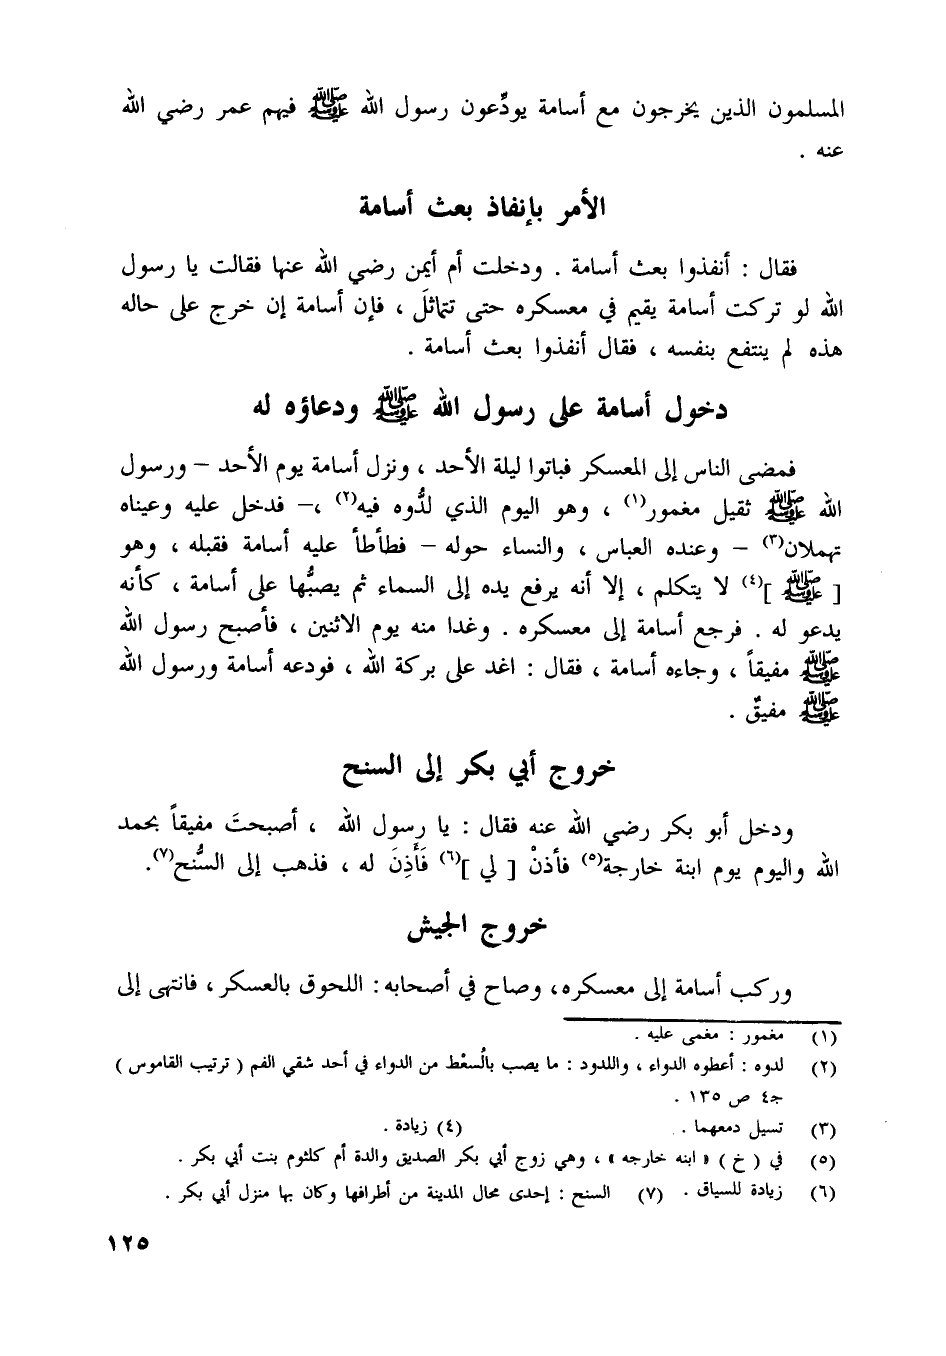 المسلمون الذين يخرجون مع أسامة يودِّعون رسول الله ﷺ فيهم عمر رضي الله
عنه .
الأمر بإنفاذ بعث أسامة
فقال : أنفذوا بعث أسامة . ودخلت أم أيمن رضي الله عنها فقالت يا رسول
الله لو تركت أسامة يقيم في معسكره حتى تتماثلَ ، فإن أسامة إن خرج على حاله
هذه لم ينتفع بنفسه ، فقال أنفذوا بعث أسامة .
دخول أسامة على رسول الله ﷺ ودعاؤه له
فمضى الناس إلى المعسكر فباتوا ليلة الأحد ، ونزل أسامة يوم الأحد – ورسول
الله ﷺ ثقيل مغمور(١) ، وهو اليوم الذي لدُّوه فيه(٢) ،– فدخل عليه وعيناه
تهملان(٣) – وعنده العباس ، والنساء حوله – فطأطأ عليه أسامة فقبله ، وهو
[ ﷺ ](٤) لا يتكلم ، إلا أنه يرفع يده إلى السماء ثم يصبُّها على أسامة ، كأنه
يدعو له . فرجع أسامة إلى معسكره . وغدا منه يوم الاثنين ، فأصبح رسول الله
ﷺ مفيقاً ، وجاءه أسامة ، فقال : اغد على بركة الله ، فودعه أسامة ورسول الله
ﷺ مفيقٌ .
خروج أبي بكر إلى السنح
ودخل أبو بكر رضي الله عنه فقال : يا رسول الله ، أصبحتَ مفيقاً بحمد
الله واليوم يوم ابنة خارجة(٥) فأذنْ [ لي ](٦) فَأَذِنَ له ، فذهب إلى السُّنح(٧).
خروج الجيش
وركب أسامة إلى معسكره، وصاح في أصحابه : اللحوق بالعسكر ، فانتهى إلى
(١) مغمور : مغمى عليه .
(٢) لدوه : أعطوه الدواء ، واللدود : ما يصب بالُسعْط من الدواء في أحد شقي الفم ( ترتيب القاموس )
جـ٤ ص ١٣٥ .
(٣) تسيل دمعهما . (٤) زيادة .
(٥) في ( خ ) « ابنه خارجه » ، وهي زوج أبي بكر الصديق والدة أم كلثوم بنت أبي بكر .
(٦) زيادة للسياق . (٧) السنح : إحدى محال المدينة من أطرافها وكان بها منزل أبي بكر .
١٢٥